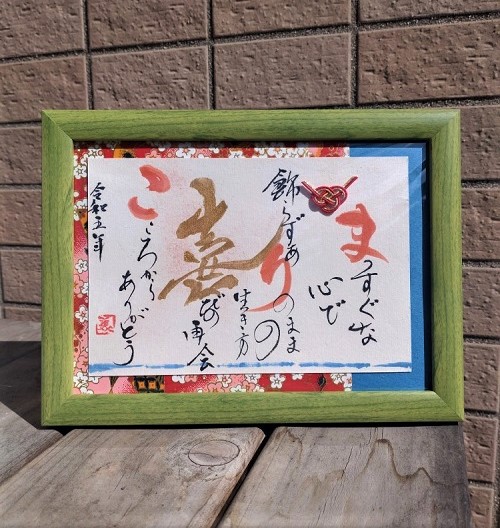 まっすぐな
心で
飾らずありのまま
の
生き方
喜びの再会
こころから
ありがとう
令和五年